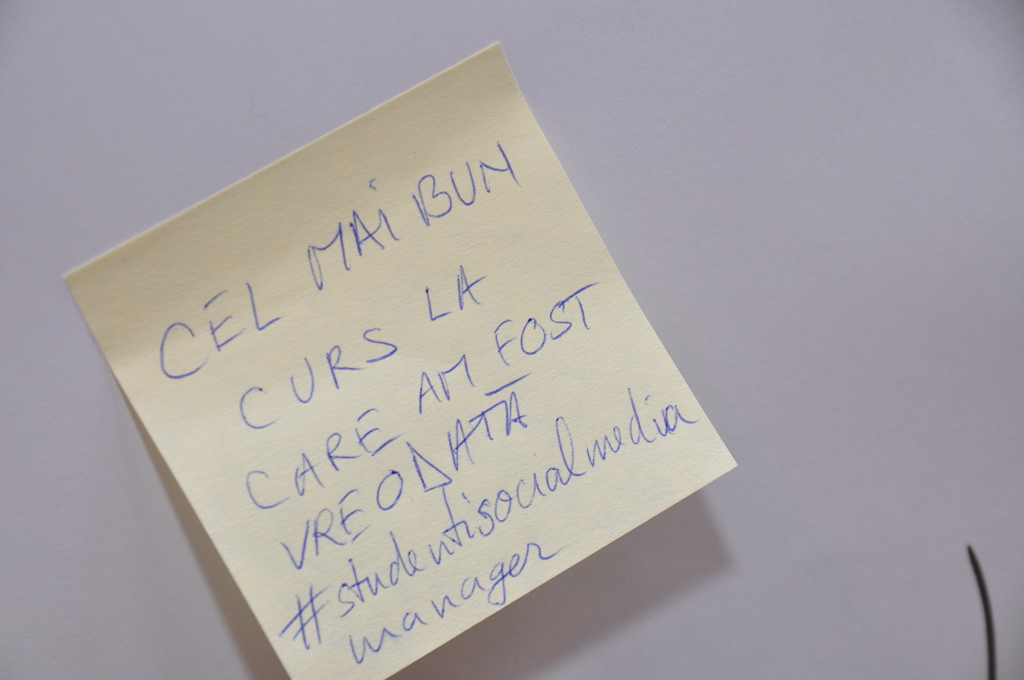 CEL MAi BUN
CURS LA
CARE AM FOST
VREODATĂ
#studentisocialmedia
manager